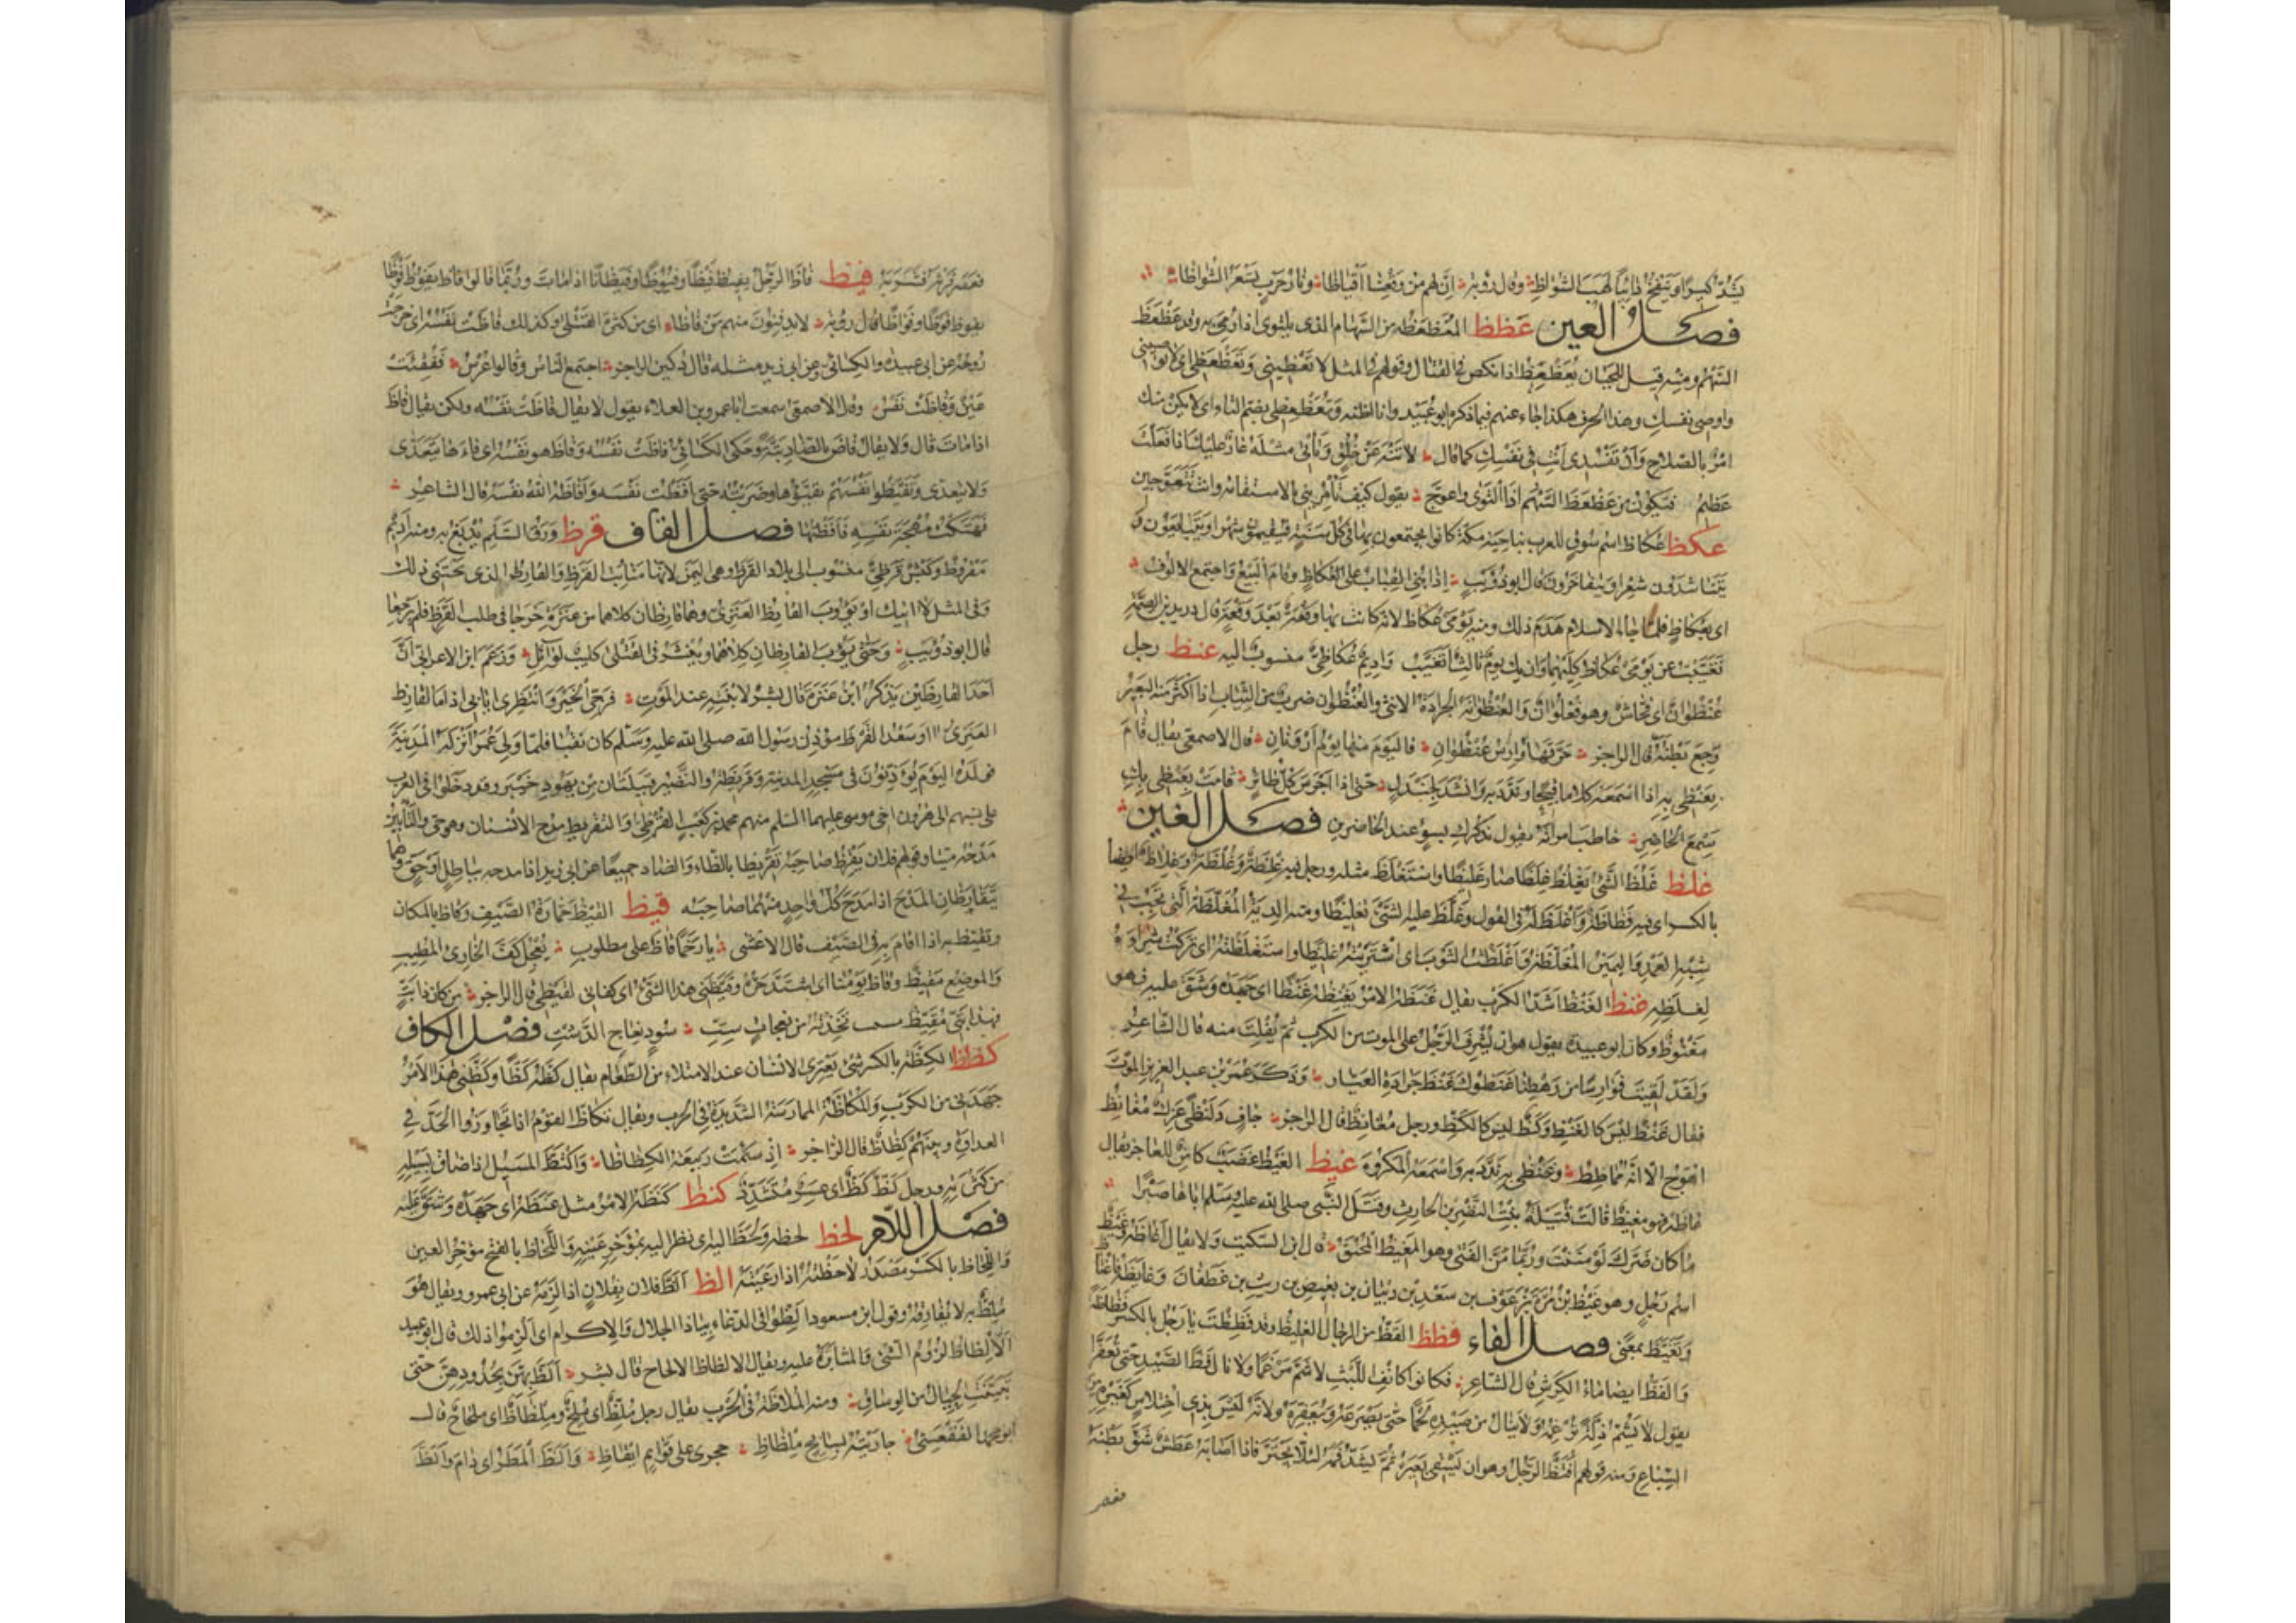 يَشُدُّ كيرًا وينفخ دائبًا لهب الشواظِ وقال رؤبة إنّ لهم من وقعنا أقياظا ونار حرب تسعر الشواظا
فصل العين عظظ المعظعظة من السهام الذى يلتوى اذا رمى به وقد عظعظ
السهم ومنه قيل للجبان يُعَظْعِظُ اذا نكص فى القتال وقولهم فى المثل لا تعظينى وتعظعظى اى لا توصينى
واوصى نفسك وهذا الحرف هكذا جاء عنهم فيما ذكره ابو عبيد وانا اظنه وتُعَظْعِظى بضم التاء اى لا يكن منك
امر بالصلاح وأن تفسدى انتِ فى نفسك كما قال لا تنه عن خلق وتأتى مثله عار عليك اذا فعلت
عظيم فيكون من عظعظ السهم اذا التوى واعوج يقول كيف تأمرينى بالاستقامة وانت تتعوجين
عكظ عكاظ اسم سوق للعرب بناحية مكة كانوا يجتمعون بها فى كل سنة فيقيمون شهرا ويتبايعون و
يتناشدون شعرا ويتفاخرون قال ابو ذؤيب اذا بنى القباب على عكاظ وقام البيع واجتمع الالوف
اى بعكاظ فلما جاء الاسلام هدم ذلك ومنه يومى عكاظ لانه كانت بها وقعة بعد وقعة قال دريد بن الصمة
تغيبت عن يومى عكاظ كليهما وان يك يوم ثالث اتغيب واديم عكاظى منسوب اليه عنظ رجل
عنظوان اى فحاش وهو فعلوان والعنظوانة الجرادة الانثى والعنظوان ضرب من النبات اذا اكثر منه البعير
وجع بطنه قال الراجز حرقها وارس عنظوان فاليوم منها يوم ارونان قال الاصمعى يقال قام
يعنظى به اذا اسمعه كلاما قبيحا وندد به وانشد لجندل حتى اذا اجرس كل طائر قامت تعنظى بك
سمع الحاضر خاطب امراته يقول تذكرك بسوء عند الحاضرين فصل الغين
غلظ غلظ الشىء يغلظ غلظا صار غليظا واستغلظ مثله ورجل فيه غلظة وغلظة وغلاظة ايضا
بالكسر اى فيه فظاظة واغلظ له فى القول وغلظ عليه الشىء تغليظا ومنه الدية المغلظة التى تجب فى
شبه العمد واليمين المغلظة واغلظت الثوب اى اشتريته غليظا واستغلظته اى تركت شراءه
لغلظه غنظ الغنظ اشد الكرب يقال غنظه الامر يغنظه غنظا اى جهده وشق عليه فهو
مغنوظ وكان ابو عبيدة يقول هو ان يشرف الرجل على الموت من الكرب ثم يفلت منه قال الشاعر
ولقد لقيت فوارسا من رهطنا غنظوك غنظ جرادة العيار وذكر عمر بن عبد العزيز الموت
فقال غنظ ليس كالغنظ وكظ ليس كالكظ ورجل مغانظ قال الراجز جاف دلنظى عرك مغانظ
اهوج الا انه مماظظ وغنظى به ندد به واسمعه المكروه غيظ الغيظ غضب كامن للعاجز يقال
غاظه فهو مغيظ قالت قتيلة بنت النضر بن الحارث وقتل النبى صلى الله عليه وسلم اباها صبرا
ما كان ضرك لو مننت وربما من الفتى وهو المغيظ المحنق قال ابن السكيت ولا يقال اغاظه وغيظ
اسم رجل وهو غيظ بن مرة بن عوف بن سعد بن ذبيان بن بغيض بن ريث بن غطفان وغايظه فاغتاظ
وتغيظ بمعنى فصل الفاء فظظ الفظ من الرجال الغليظ وقد فظظت يا رجل بالكسر فظاظة
والفظ ايضا ماء الكرش قال الشاعر فكانوا كانف الليث لا شم مرغما ولا نال فظ الصيد حتى يعفرا
يقول لا يشم ذلة ترغمه ولا ينال من صيده لحما حتى يصرعه ويعفره ولانه ليس بذى اختلاس كغيره من
السباع ومنه قولهم افتظ الرجل وهو ان يسقى بعيره ثم يشد فمه لئلا يجتر فاذا اصابه عطش شق بطنه
فعصر
فعصر فرثه فشربه فيظ فاظ الرجل يفيظ فيظا وفيوظا وفيظانا اذا مات وربما قالوا فاظ يفوظ فوظا
وفواظا قال رؤبة لا يدفنون منهم من فاظا اى من كثرة القتلى وكذلك فاظت نفسه اى خرجت
روحه عن ابى عبيدة والكسائى وعن ابى زيد مثله قال دكين الراجز اجتمع الناس وقالوا عرس ففقئت
عين وفاظت نفس وقال الاصمعى سمعت ابا عمرو بن العلاء يقول لا يقال فاظت نفسه ولكن يقال فاظ
اذا مات قال ولا يقال فاض بالضاد بتة وحكى الكسائى فاظت نفسه وفاظ هو نفسه اى قاءها يتعدى
ولا يتعدى وتفيظوا انفسهم تقيؤها وضربته حتى افظت نفسه وافاظه الله نفسه قال الشاعر
فهتكت مهجة نفسه فافظتها فصل القاف قرظ ورق السلم يدبغ به ومنه اديم
مقروظ وكبش قرظى منسوب الى بلاد القرظ وهى اليمن لانها منابت القرظ والقارظ الذى يجتنى ذلك
وفى المثل لا اتيك او يؤوب القارظ العنزى وهما قارظان كلاهما من عنزة خرجا فى طلب القرظ فلم يرجعا
قال ابو ذؤيب وحتى يؤوب القارظان كلاهما وينشر فى القتلى كليب لوائل وزعم ابن الاعرابى ان
احد القارظين يذكر ابن عنزة قال بشر لابنته عند الموت فرجى الخير وانتظرى ايابى اذا ما القارظ
العنزى ابا وسعد القرظ مؤذن رسول الله صلى الله عليه وسلم كان بقبا فلما ولى عمر انزله المدينة
فولده اليوم يؤذنون فى مسجد المدينة وقريظة والنضير قبيلتان من يهود خيبر وقد دخلوا فى العرب
على نسبهم الى هرون اخى موسى عليهما السلم منهم محمد بن كعب القرظى والتقريظ مدح الانسان وهو حى والتأبين
مدحه ميتا وقولهم فلان يقرظ صاحبه تقريظا بالظاء والضاد جميعا عن ابى زيد اذا مدحه بباطل او حق وهما
يتقارظان المدح اذا مدح كل واحد منهما صاحبه قيظ القيظ حمارة الصيف وقاظ بالمكان
وتقيظ به اذا اقام به فى الصيف قال الاعشى يا رخما قاظ على مطلوب يعجل كف الخارئ المطيب
والموضع مقيظ وقاظ يومنا اى اشتد حره وقيظنى هذا الشىء اى كفانى لقيظى قال الراجز من كان ذا بت
فهذا بتى مقيظ تخذته من نعجات ست سود نعاج الدشت فصل الكاف
كظظ الكظة بالكسر شىء يعترى الانسان عند الامتلاء من الطعام يقال كظه كظا وكظنى هذا الامر
جهدنى من الكرب والمكاظة الممارسة الشديدة فى الحرب ويقال تكاظ القوم اذا تجاوزوا الحد فى
العداوة وبينهم كظاظ قال الراجز اذ سئمت ربيعة الكظاظا واكتظ المسيل اذا ضاق بسيله
من كثرته ورجل كظ لظ اى عسر متشدد كنظ كنظه الامر مثل غنظه اى جهده وشق عليه
فصل اللام لحظ لحظه ولحظ اليه اى نظر اليه بمؤخر عينه واللحاظ بالفتح مؤخر العين
واللحاظ بالكسر مصدر لاحظته اذا رعيته الظ الظ فلان بفلان اذا لزمه عن ابى عمرو ويقال هو
ملظ به لا يفارقه وقول ابن مسعود الظوا فى الدعاء بياذا الجلال والاكرام اى الزموا ذلك قال ابو عبيد
الالظاظ لزوم الشىء والمثابرة عليه ويقال الالظاظ الالحاح قال بشر الظ بهن يحدوهن حتى
تبينت الحيال من الوساق ومنه الملاظة فى الحرب يقال رجل ملظ اى ملح وملظاظ اى ملحاح قال
ابو محمد الفقعسى جاريته بسابح ملظاظ يجرى على قوائم ايقاظ والظ المطر اى دام والظ